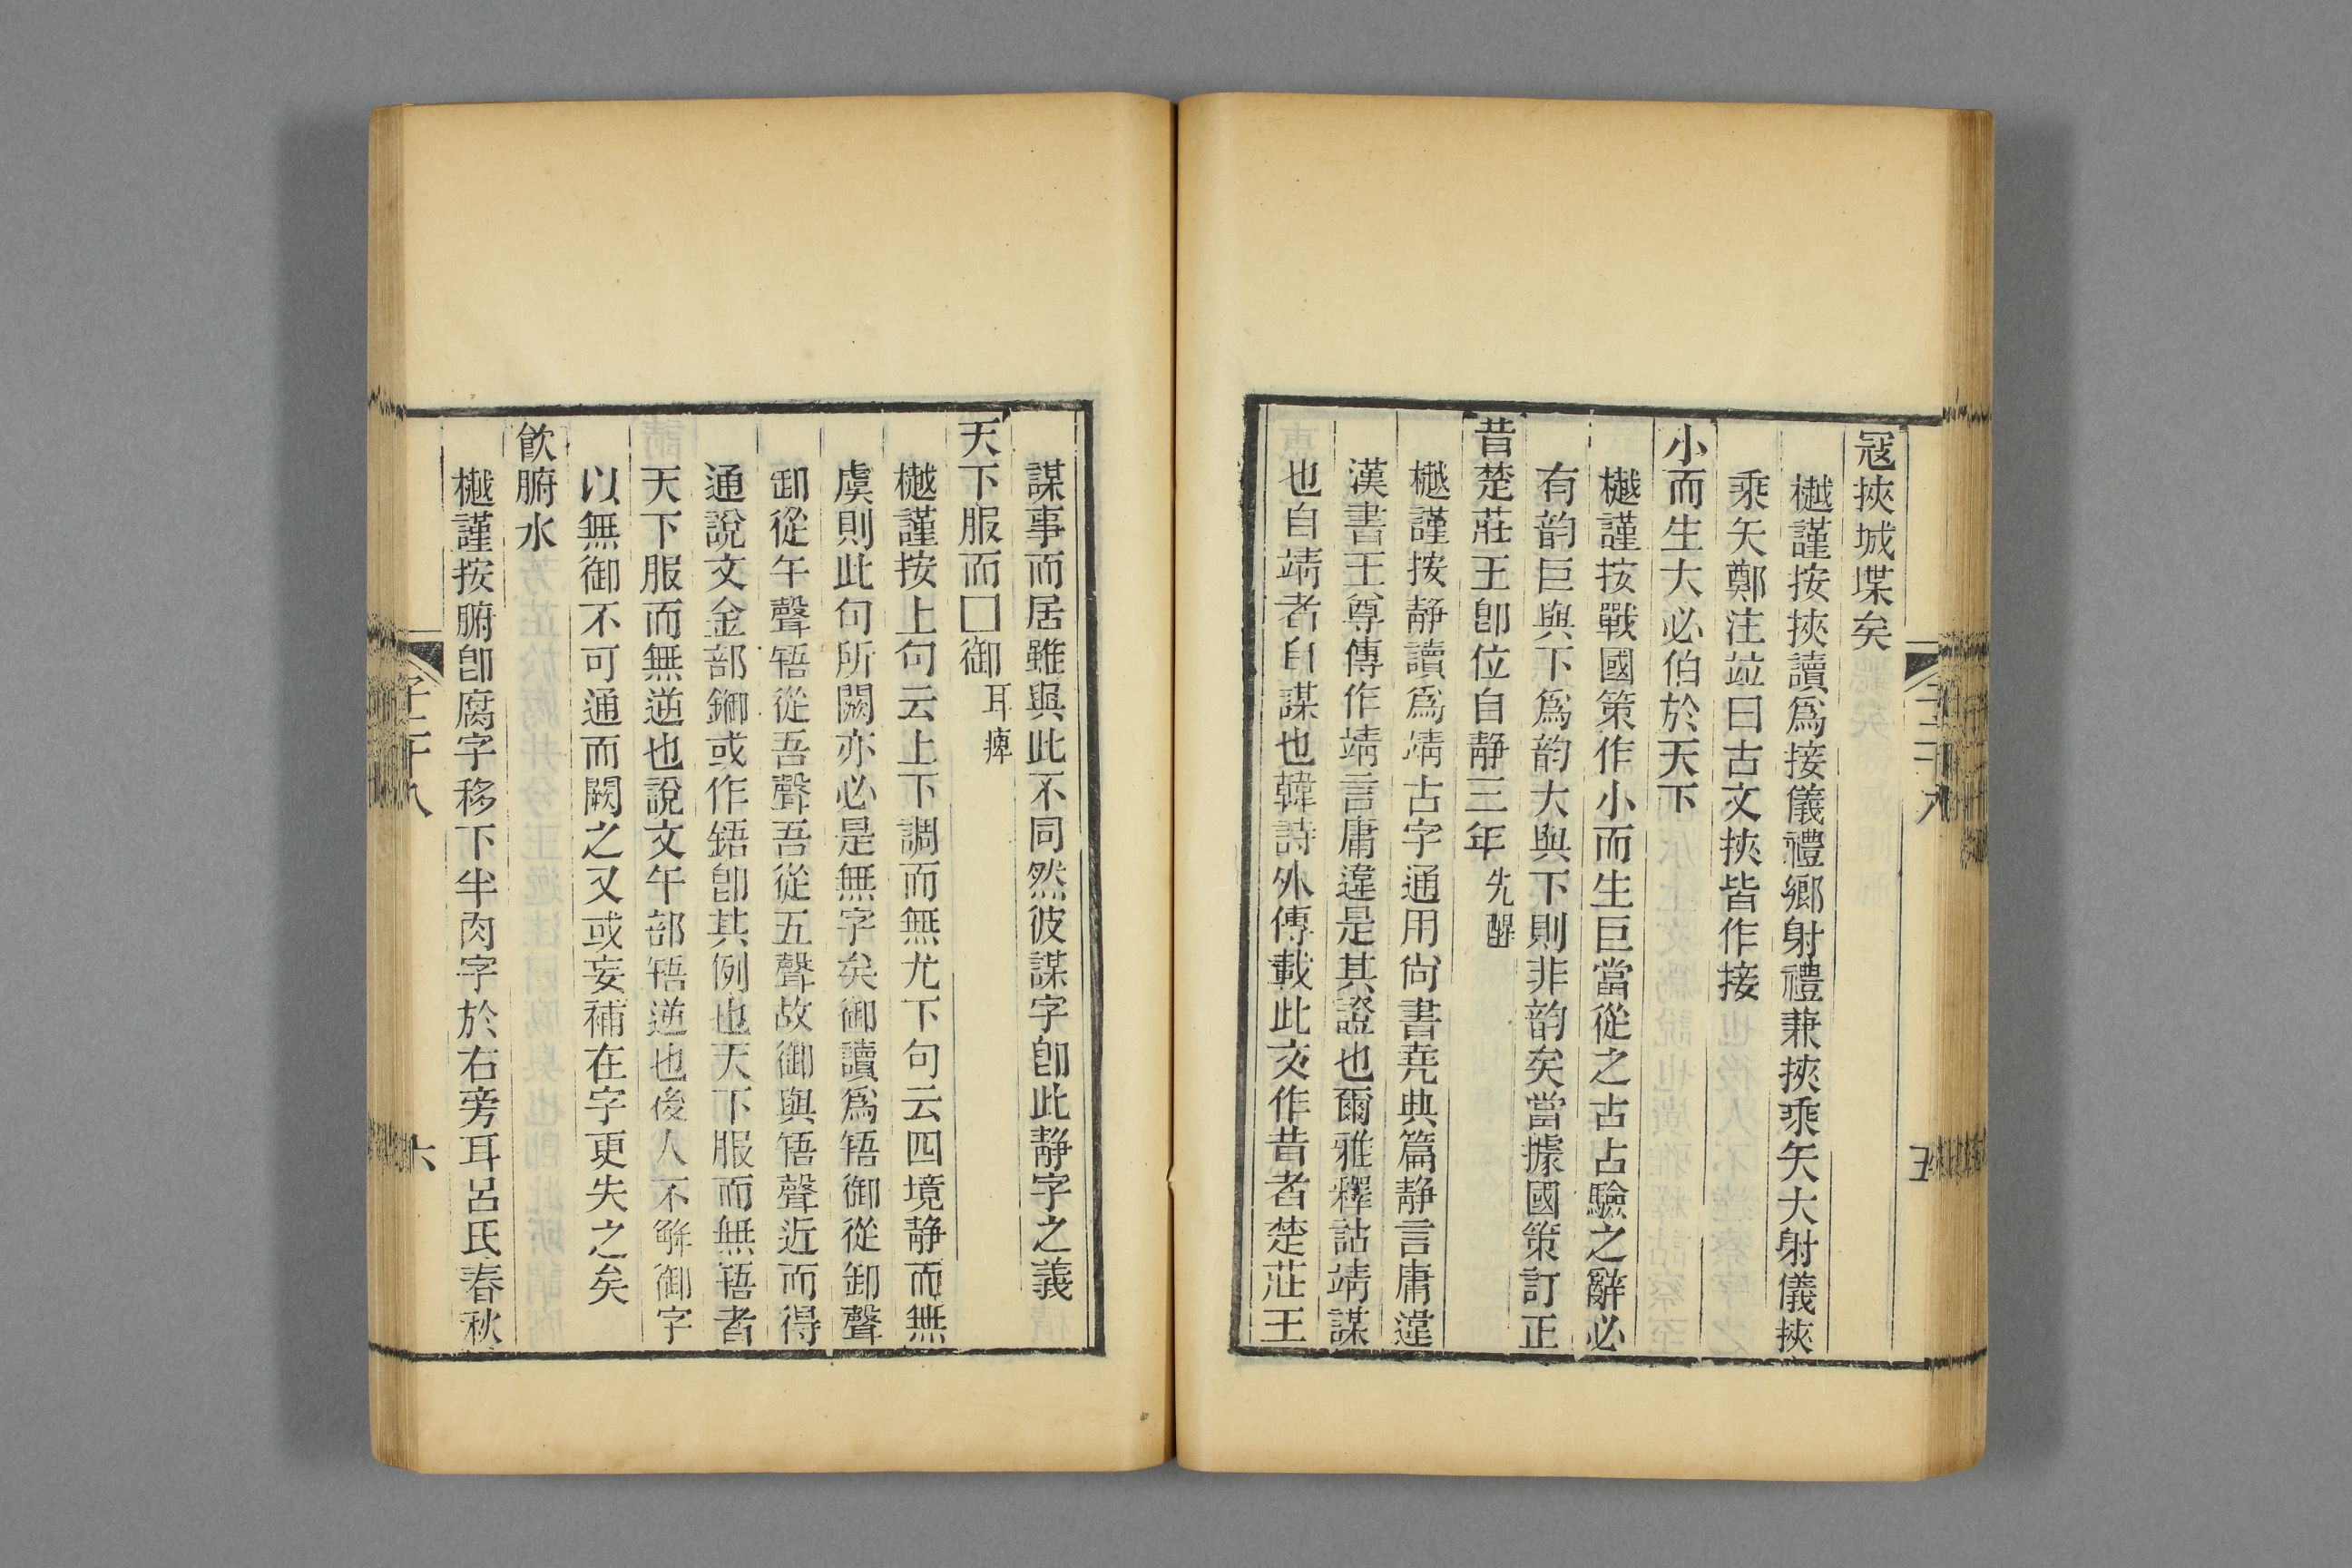 寇挾城堞矣
樾謹按挾讀爲接儀禮鄉射禮兼挾乘矢大射儀挾
乘矢鄭注竝曰古文挾皆作接
小而生大必伯於天下
樾謹按戰國策作小而生巨當從之古占驗之辭必
有韵巨與下爲韵大與下則非韵矣當據國策訂正
昔楚莊王卽位自靜三年先醒
樾謹按静讀爲靖古字通用尙書堯典篇静言庸違
漢書王尊傳作靖言庸違是其證也爾雅釋詁靖謀
也自靖者自謀也韓詩外傳載此文作昔者楚莊王
謀事而居雖與此不同然彼謀字卽此静字之義
天下服而囗御耳痺
樾謹按上句云上下調而無尤下句云四境静而無
虞則此句所闕亦必是無字矣御讀爲啎御從卸聲
卸從午聲啎從吾聲吾從五聲故御與啎聲近而得
通說文金部鋤或作鋙卽其例也天下服而無啎者
天下服而無逆也說文午部啎逆也後人不解御字
以無御不可通而闕之又或妄補在字更失之矣
飮腑水
樾謹按腑卽腐字移下半肉字於右旁耳呂氏春秋
子二十八
六
五